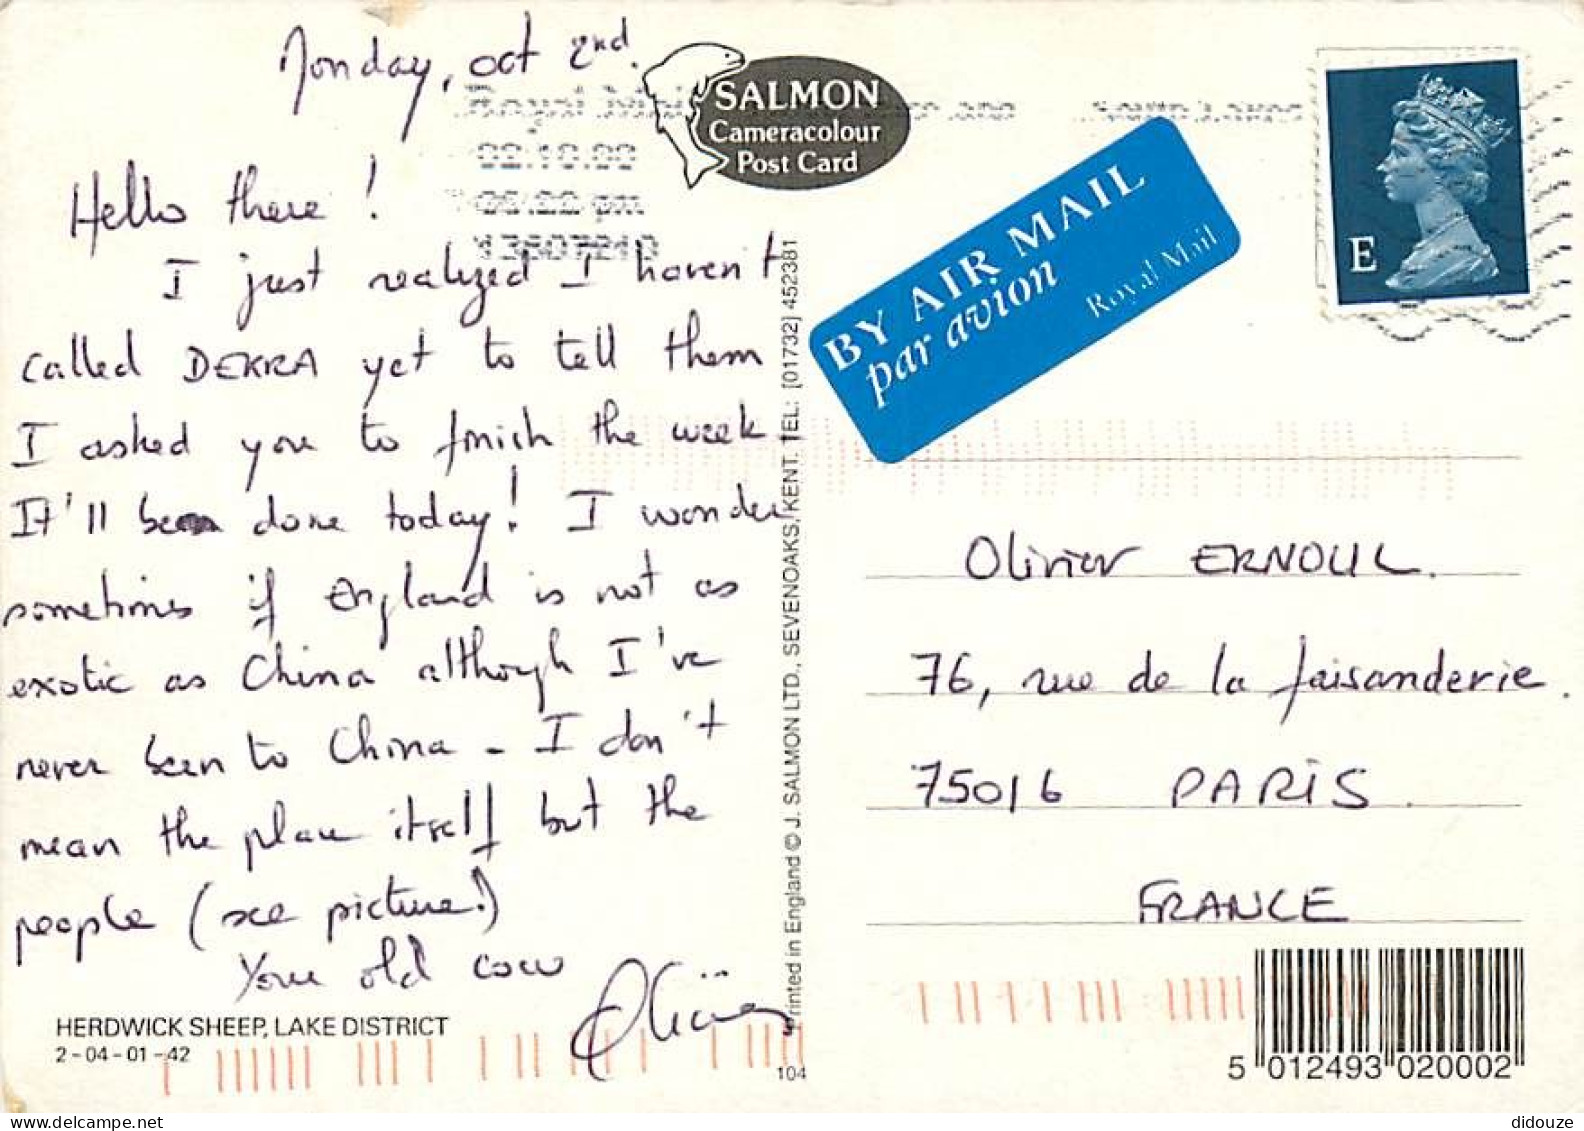 Monday, oct 2nd.
SALMON
Cameracolour
Post Card
Royal Mail
02.10.00
06:00 pm
13607210
Hello there!
I just realyzed I haven't
called DEKRA yet to tell them
I asked you to finish the week -
It'll be done today! I wonder
sometimes if England is not as
exotic as China although I've
never been to China - I don't
mean the place itself but the
people (see picture!)
Your old cow
HERDWICK SHEEP, LAKE DISTRICT
2-04-01-42
Printed in England © J. SALMON LTD., SEVENOAKS, KENT. TEL: [01732] 452381
104
BY AIR MAIL
par avion
Royal Mail
E
Olivier ERNOUL.
76, rue de la faisanderie.
75016 PARIS.
FRANCE
5 012493 020002
didouze